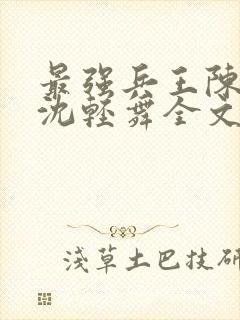 最强兵王陈
沈轻舞全文
浅草土巴技研